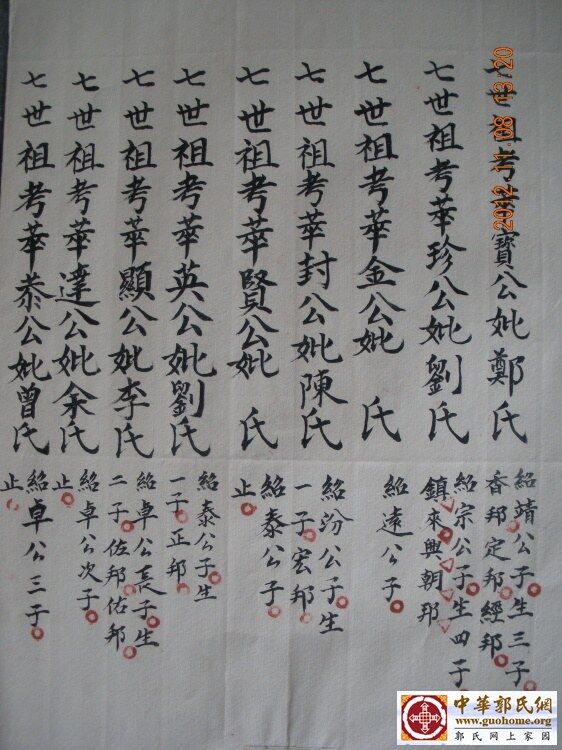 七世祖考華寶公妣鄭氏
紹靖公子生三子
香邦定邦經邦
七世祖考華珍公妣劉氏
紹宗公子生四子
鎮來興朝邦
七世祖考華金公妣氏
紹遠公子
七世祖考華封公妣陳氏
紹汾公子生
一子宏邦
七世祖考華賢公妣氏
紹泰公子
止
七世祖考華英公妣劉氏
紹泰公子生
一子正邦
七世祖考華顯公妣李氏
紹卓公長子生
二子佐邦佑邦
七世祖考華達公妣余氏
紹卓公次子
止
七世祖考華泰公妣曾氏
紹卓公三子
止
2012.11.08 13:20
中華郭氏網
www.guohome.org
郭氏网上家园